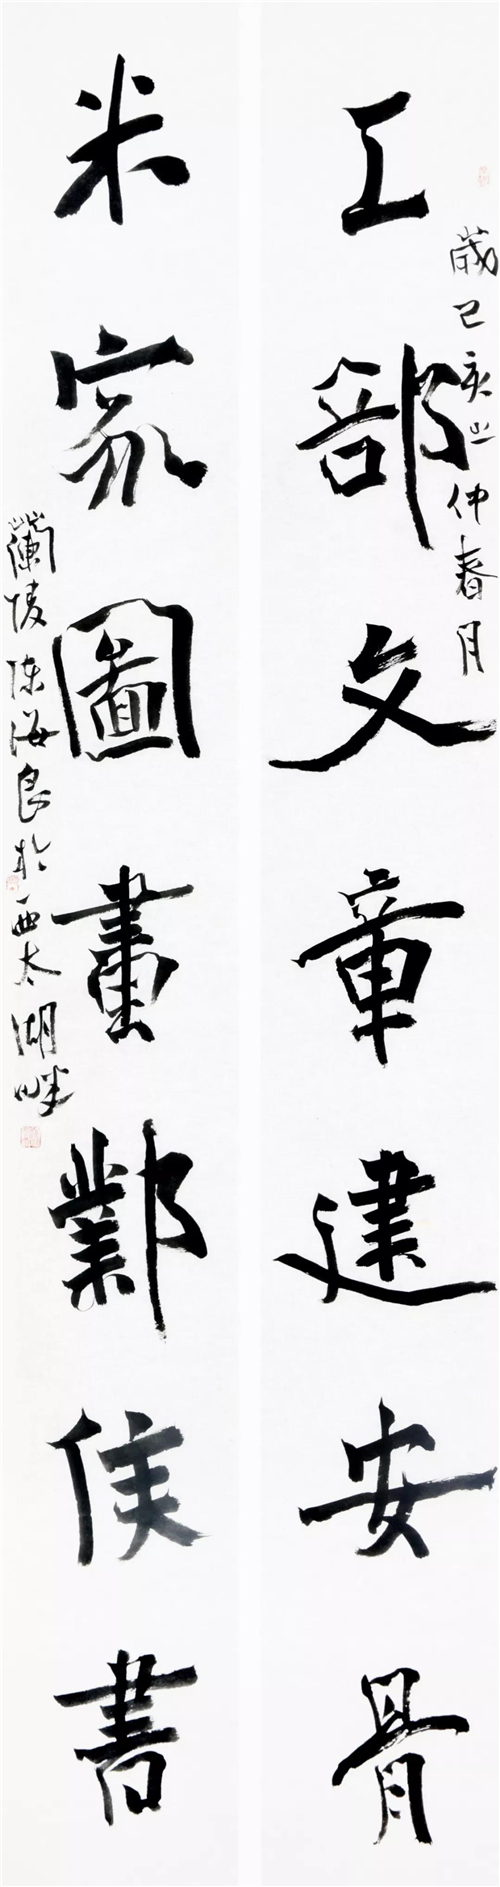 歲己亥之仲春月
工部文章建安骨
米家圖畫鄴侯書
蘭陵陳海良於西太湖畔